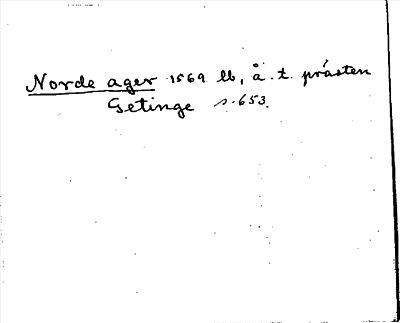 Norde ager 1569 lb, å. t. prästen
Getinge s. 653.